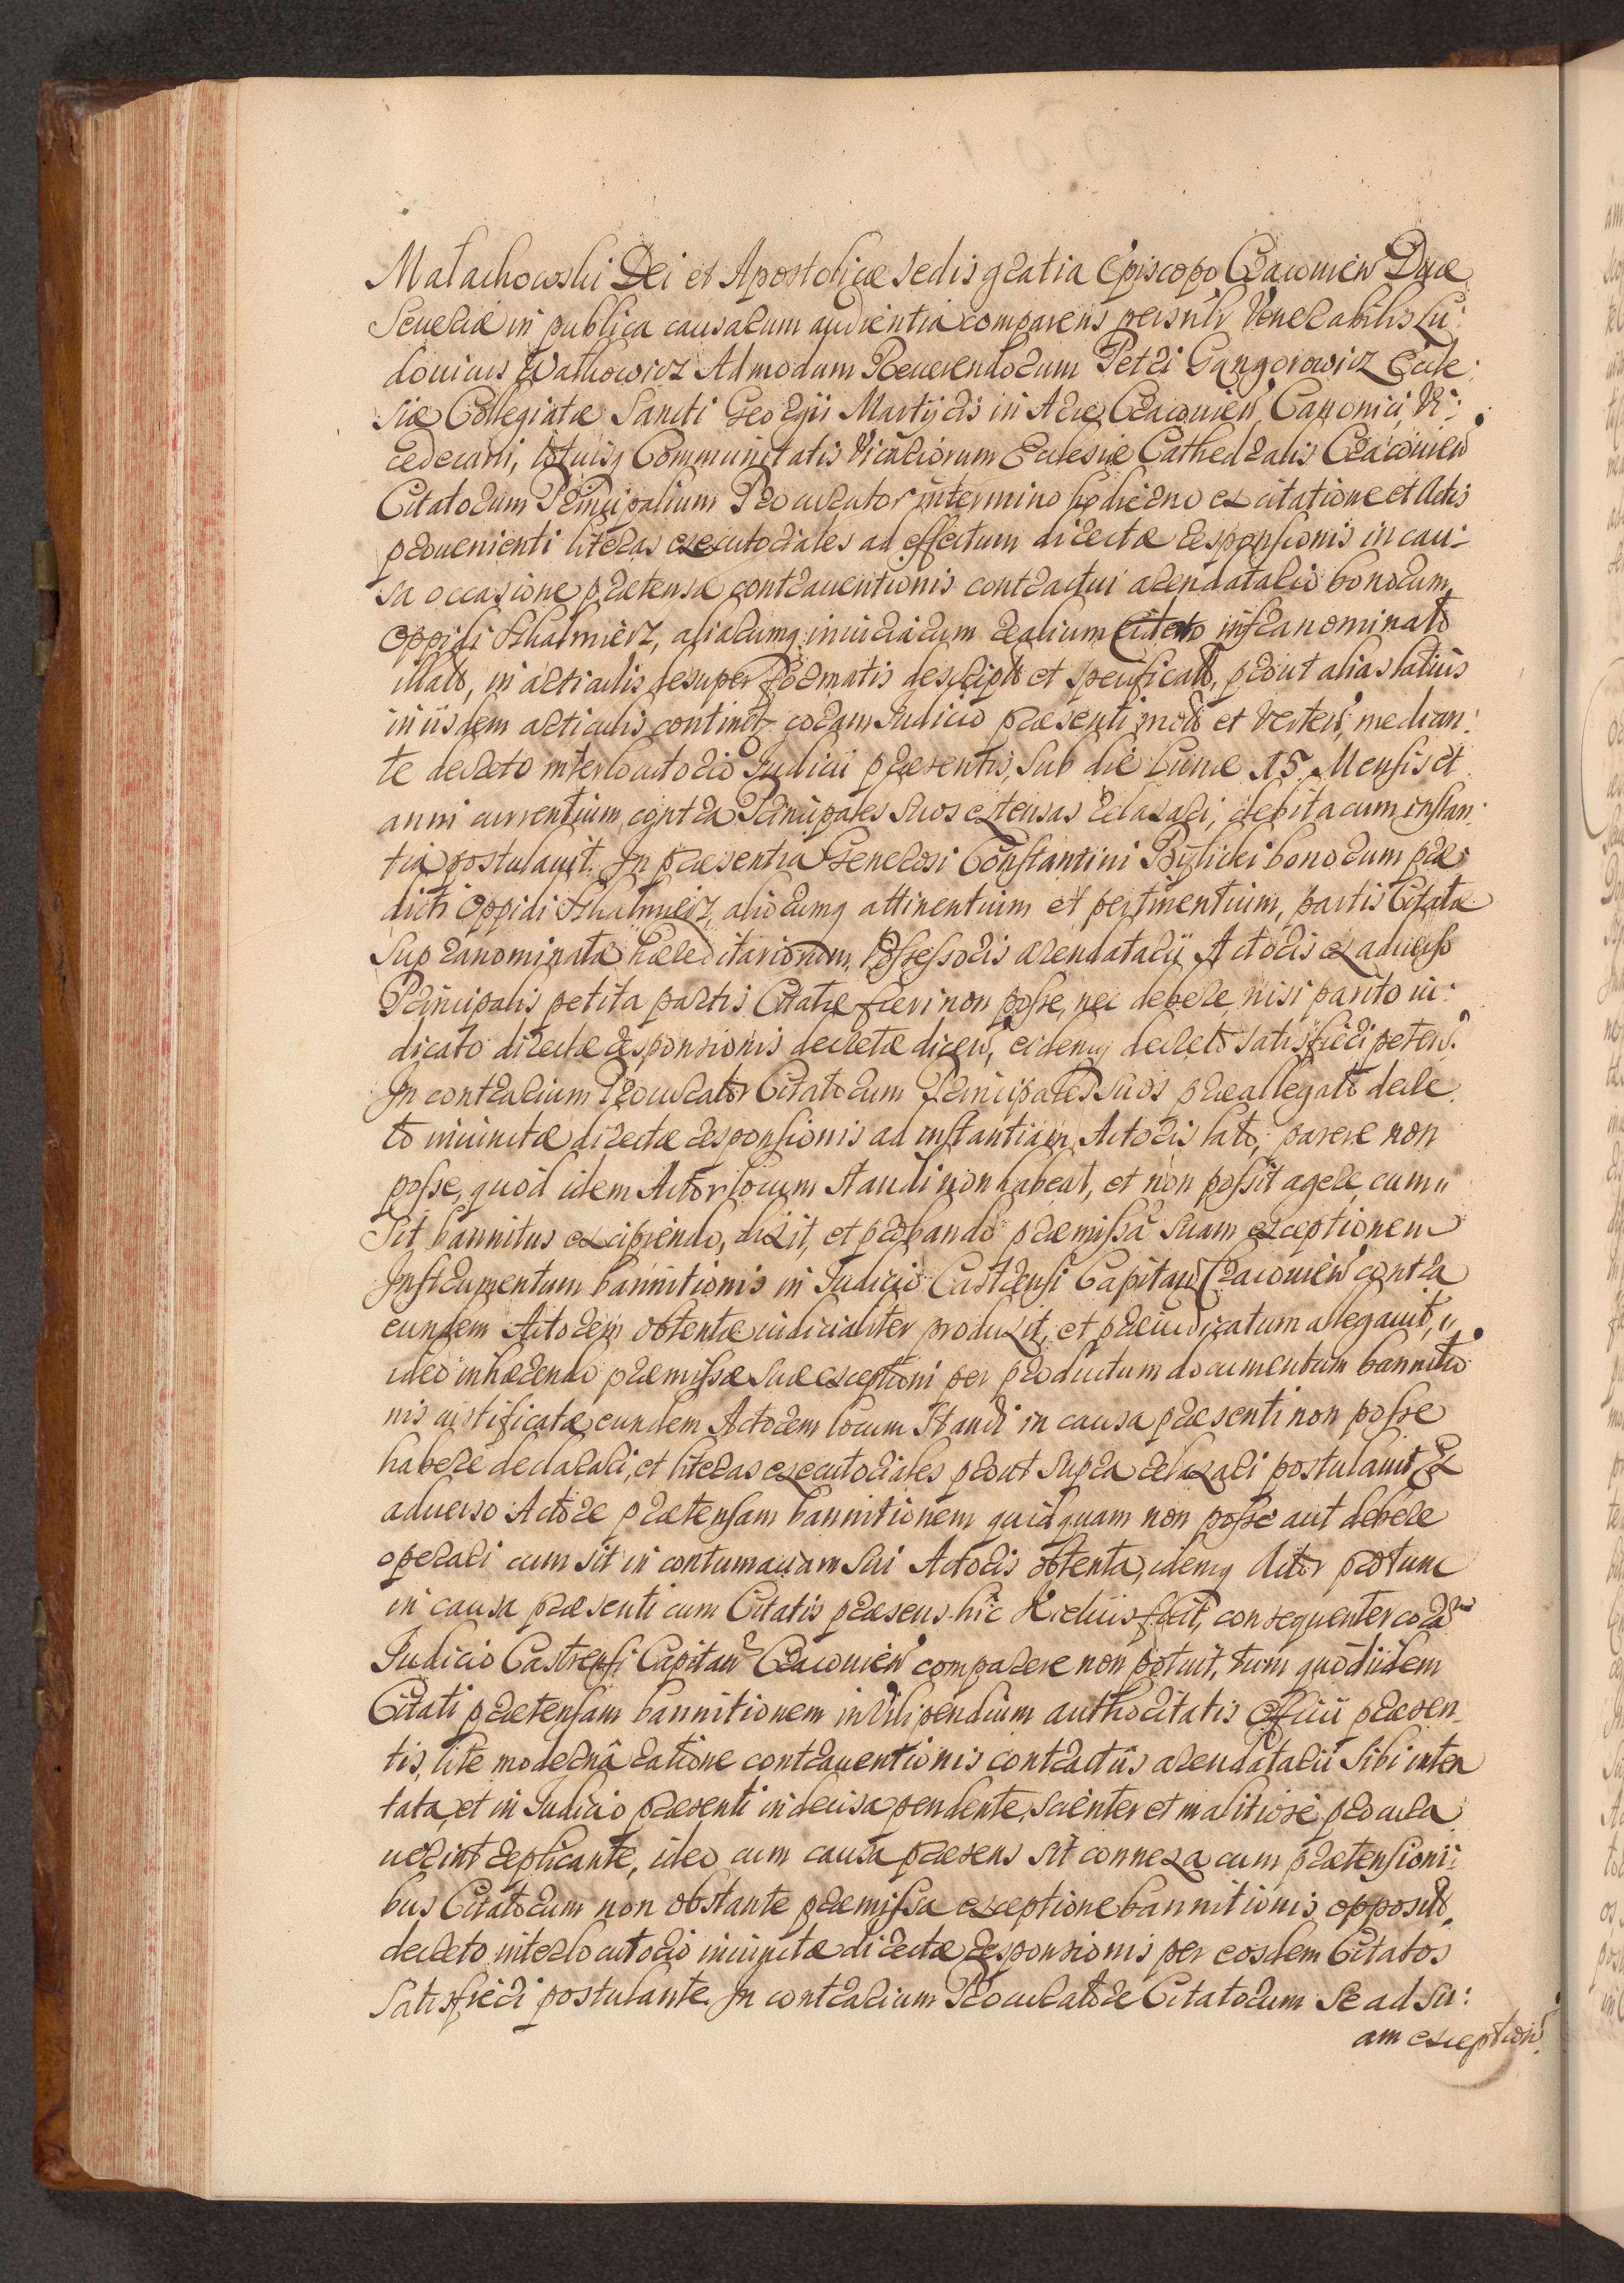 Małachowski Dei et Apostolicæ sedis gratia Episcopo Cracovien Duce
Severiæ in publica causarum audientia comparens personlr Venerabilis Lu:
dovicus Wathowicz Admodum Reverendorum Petri Gangorowicz Eccle:
siæ Collegiatæ Sancti Georgii Martyris in Arce Cracovien Canonici, Vi:
cedecani, totiusq Communitatis Vicariorum Ecclesiæ Cathedralis Cracovien
Citatorum Principalium Procurator in termino hodierno ex citatione et Actis
proveniente literas executoriales ad effectum directæ responsionis in cau:
sa occasione prætensæ contraventionis contractui arendatario bonorum
Oppidi Skalmierz, aliarumq iniuriarum realium infranominato
illato, in articulis desuper formatis descripto et specificato, prout alias latius
in iisdem articulis continetr coram Iudicio præsenti moto et verten, median:
te decreto interlocutorio Iudicii præsentis, sub die Lunæ 15 Mensis et
anni currentium, contra Principales suos extensas relaxari, debita cum instan:
tia postulavit. In præsentia Generosi Constantini Bylicki bonorum præ
dicti Oppidi Skalmierz, aliorumq attinentium et pertinentium, partis Citatæ
supranominatæ hæreditariorum, Possessoris arendatarii Actoris ex adverso
Principalis petita partis Citatæ fieri non posse, nec debere, nisi parito iu:
dicato directæ responsionis decretæ dicen, eidemq decreto satisfieri peten.
In contrarium Procurator Citatorum Principales suos præallegato decre
to iniunctæ directæ responsionis ad instantiam Actoris lato, parere non
posse, quod idem Actor locum standi non habeat, et non possit agere, cum
sit bannitus excipiendo, dixit, et probando præmissâ suam exceptionem
Instrumentum bannitionis in Iudicio Castrensi Capitan Cracovien contra
eundem Actorem obtentæ iudicialiter produxit, et præiudicatum allegavit,
ideo inhærendo præmissæ suæ exceptioni per productum documentum bannitio
nis iustificatæ eundem Actorem locum standi in causa præsenti non posse
habere declarari, et literas executoriales prout supra relaxari postulavit. Ex
adverso Actore prætensam bannitionem quidquam non posse aut debere
operari cum sit in contumaciam sui Actoris obtenta, idemq Actor protunc
in causa præsenti cum Citatis præsens hic Kielciis fuit, consequenter corā
Iudicio Castrensi Capitan Cracovien comparere non potuit, tum quod iidem
Citati prætensam bannitionem in vilipendium authoritatis Officii præsen
tis, lite modernâ ratione contraventionis contractûs arendatarii sibi inten
tata, et in Iudicio præsenti indecisa pendente, scienter et malitiose procura
verint replicante, ideo cum causa præsens sit connexa cum prætensioni:
bus Citatorum non obstante præmissa exceptione bannitionis opposito
decreto interlocutorio iniunctæ directæ responsionis per eosdem Citatos
satisfieri postulante. In contrarium Procuratore Citatorum se ad su:
am exception.